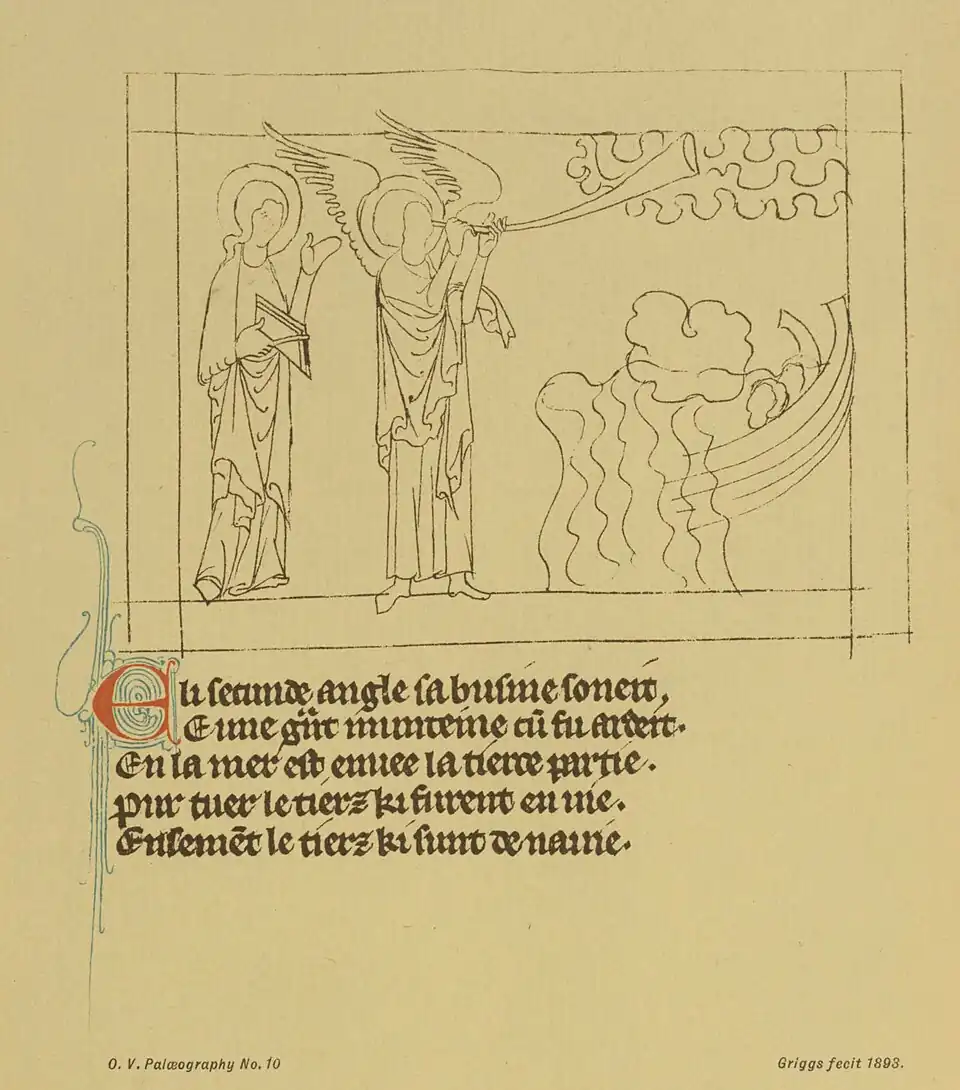 E li secunde angle sa busine soneit,
E une gñt munteine cũ fu ardeit.
En la mer est enuee la tierce partie.
Pur tuer le tierz ki furent en uie.
Ensemẽt le tierz ki sunt de nauie.
O. V. Palæography No. 10
Griggs fecit 1893.